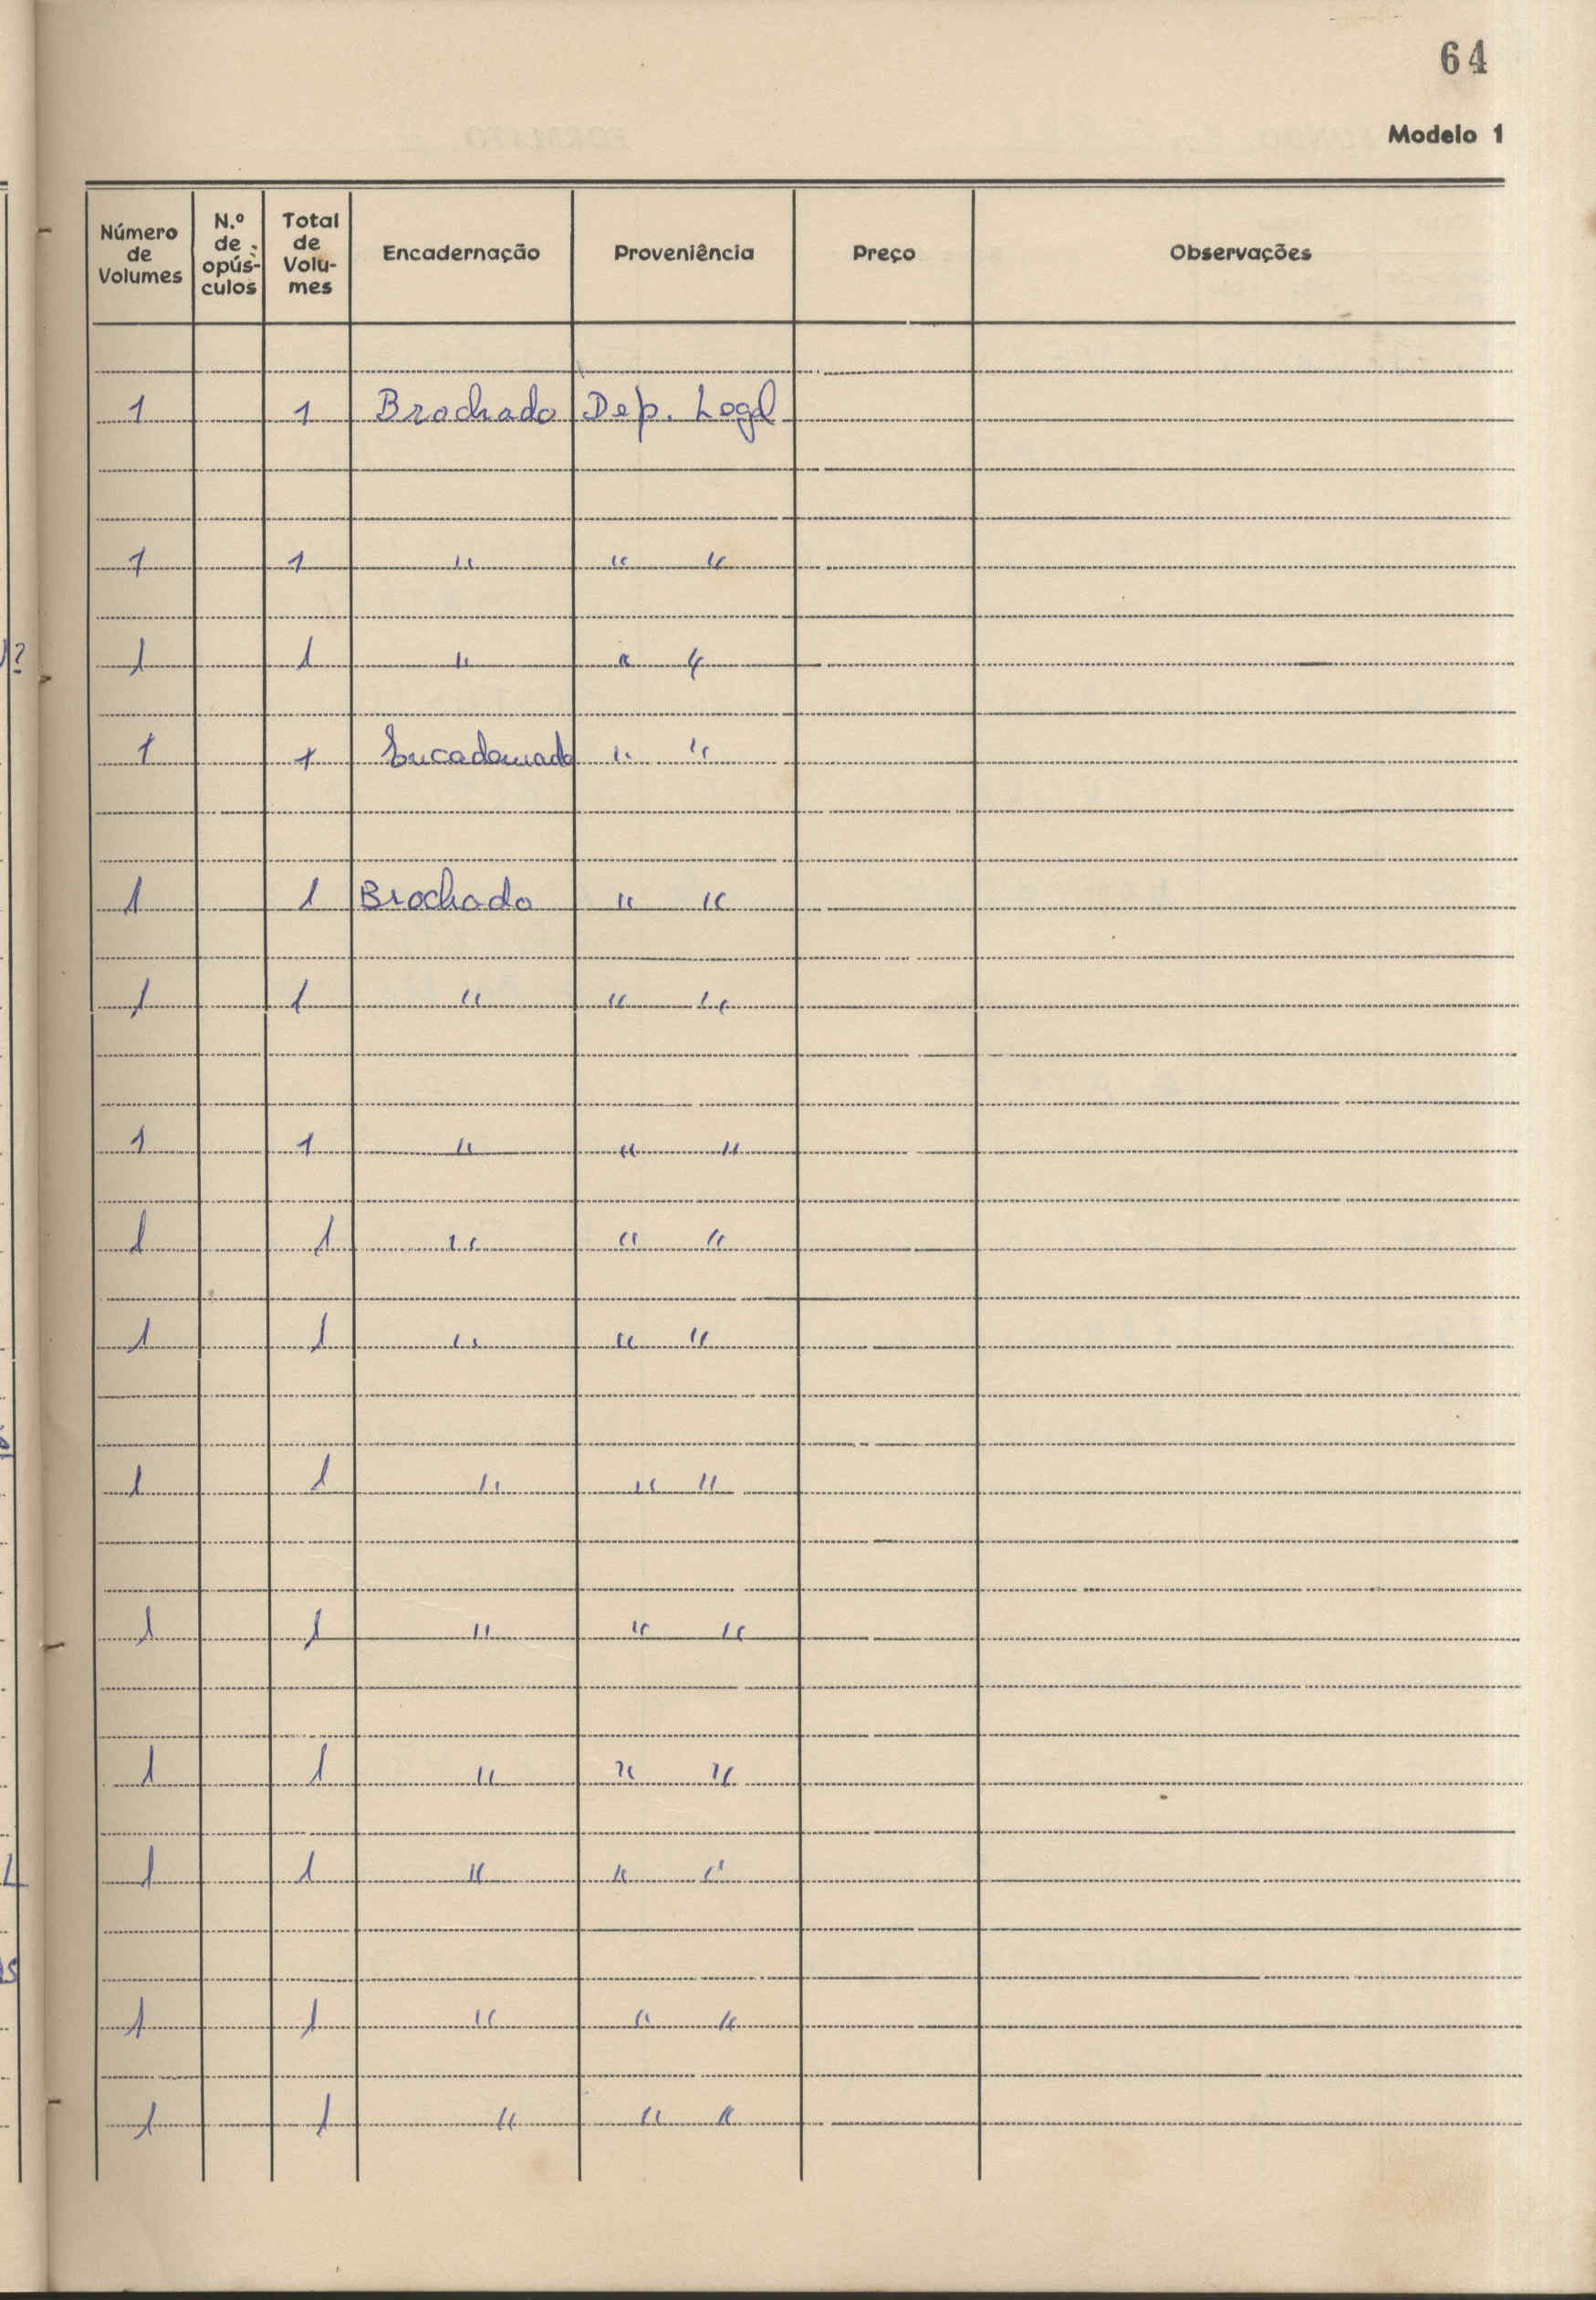 64
Modelo 1
Número de Volumes | N.º de opús-culos | Total de Volu-mes | Encadernação | Proveniência | Preço | Observações
1 1 Brochado Dep. Legal
1 1 " " "
1 1 " " "
1 1 Encadernado " "
1 1 Brochado " "
1 1 " " "
1 1 " " "
1 1 " " "
1 1 " " "
1 1 " " "
1 1 " " "
1 1 " " "
1 1 " " "
1 1 " " "
1 1 " " "